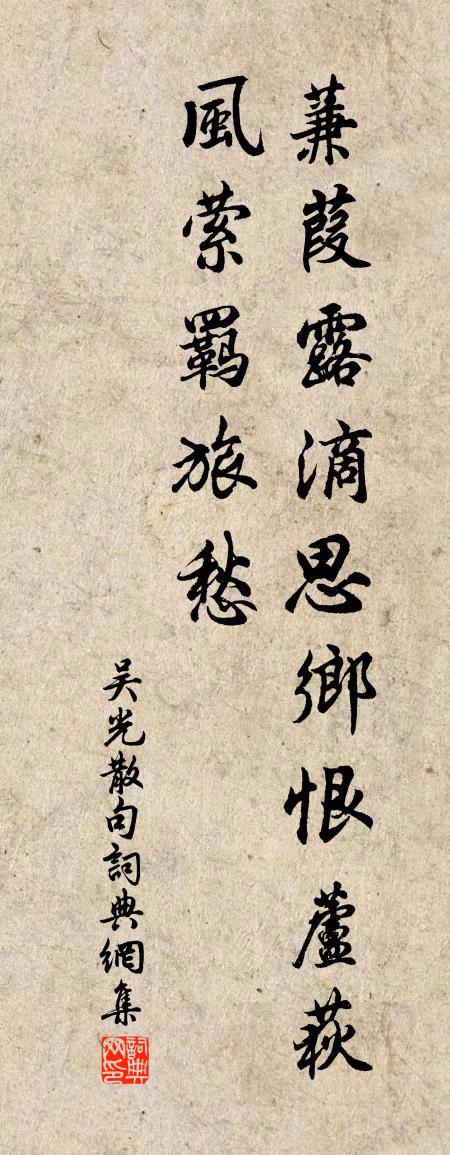 蒹葭露滴思鄉恨蘆荻
風縈羈旅愁
吴光散句詞典網集
詞典网印